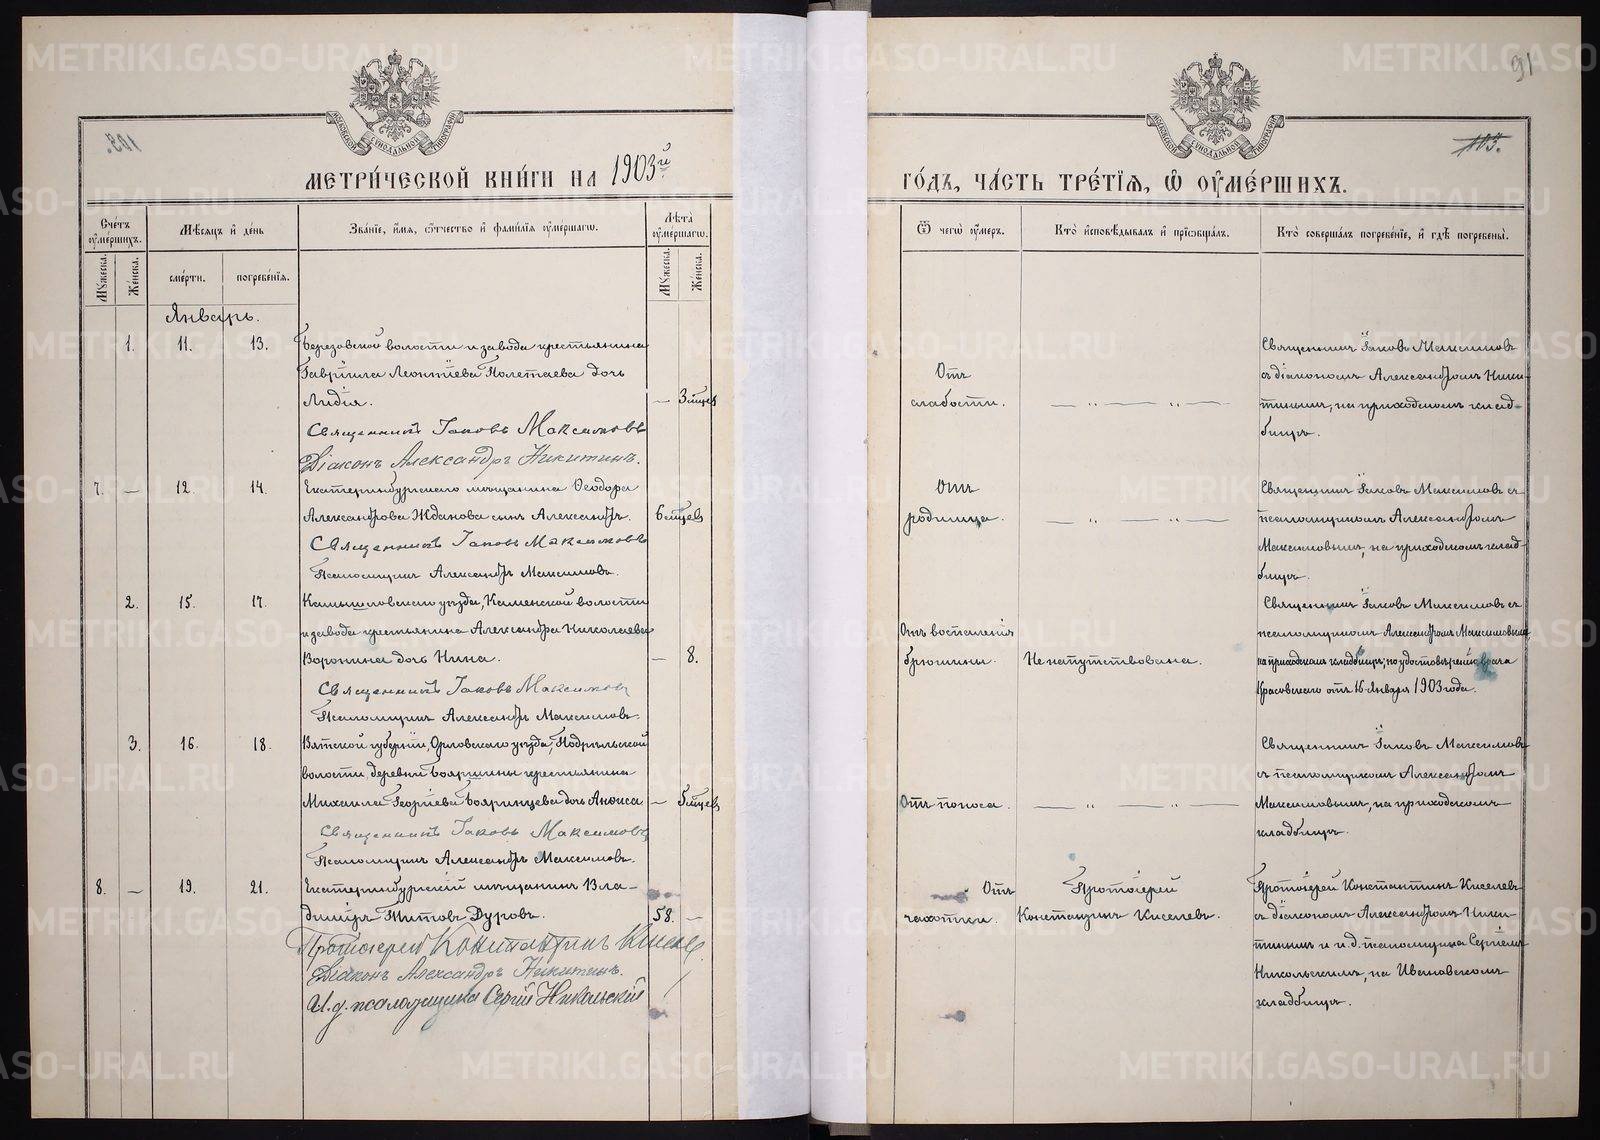 91
103.
103.
МЕТРИ́ЧЕСКОЙ КНИ́ГИ НА 1903й
ГО́ДЪ, ЧА́СТЬ ТРЕ́ТІѦ, Ѽ ОУ҆МЕ́РШИХЪ.
Сче́тъ оу҆ме́ршихъ.
Мѣ́сяцъ и҆ де́нь
Зва́ніе, и҆́мя, ѻ҆́тчество и҆ фами́лія оу҆ме́ршагѡ.
Лѣта̀ оу҆ме́ршагѡ.
Ѿ чегѡ̀ оу҆́меръ.
Кто̀ и҆сповѣ́дывалъ и҆ прїѡбща́лъ.
Кто̀ соверша́лъ погребе́ніе, и҆ гдѣ̀ погребены̀.
Му́жеска.
Же́нска.
сме́рти.
погребе́нія.
Му́жеска.
Же́нска.
Январь.
1. 11. 13. Березовской волости и завода крестьянина
Гавріила Леонтіева Полетаева дочь
Лидія. — 3 мцев
Священникъ Іаковъ Максимовъ
Діаконъ Александръ Никитинъ.
Отъ
слабости. — „ — „ —
Священникъ Іаковъ Максимовъ
съ діакономъ Александромъ Ники-
тинымъ, на приходскомъ клад-
бищѣ.
7. — 12. 14. Екатеринбургскаго мѣщанина Ѳеодора
Александрова Жданова сынъ Александръ. 6 мцев
Священникъ Іаковъ Максимовъ
Псаломщикъ Александръ Максимовъ.
Отъ
родимца. — „ — „ —
Священникъ Іаковъ Максимовъ съ
псаломщикомъ Александромъ
Максимовымъ, на приходскомъ клад-
бищѣ.
2. 15. 17. Камышловскаго уѣзда, Каменской волости
и завода крестьянина Александра Николаева
Воронина дочь Нина. — 8.
Священникъ Іаковъ Максимовъ
Псаломщикъ Александръ Максимовъ.
Отъ воспаленія
брюшины. Не напутствована.
Священникъ Іаковъ Максимовъ съ
псаломщикомъ Александромъ Максимовымъ
на приходскомъ кладбищѣ, по удостовѣренію врача
Красовскаго отъ 16 Января 1903 года.
3. 16. 18. Вятской губерніи, Орловскаго уѣзда, Подрѣльской
волости, деревни Бояршины крестьянина
Михаила Георгіева Бояринцева дочь Анѳиса — 5 мцев
Священникъ Іаковъ Максимовъ
Псаломщикъ Александръ Максимовъ.
Отъ поноса. — „ — „ —
Священникъ Іаковъ Максимовъ
съ псаломщикомъ Александромъ
Максимовымъ, на приходскомъ
кладбищѣ.
8. — 19. 21. Екатеринбургскій мѣщанинъ Вла-
диміръ Титовъ Дуровъ. 58. —
Протоіерей Константинъ Киселевъ.
Діаконъ Александръ Никитинъ.
И. д. псаломщика Сергій Никольскій
Отъ
чахотки.
Протоіерей
Константинъ Киселевъ.
Протоіерей Константинъ Киселевъ
съ діакономъ Александромъ Ники-
тинымъ и и. д. псаломщика Сергіемъ
Никольскимъ, на Ивановскомъ
кладбищѣ.
METRIKI.GASO-URAL.RU